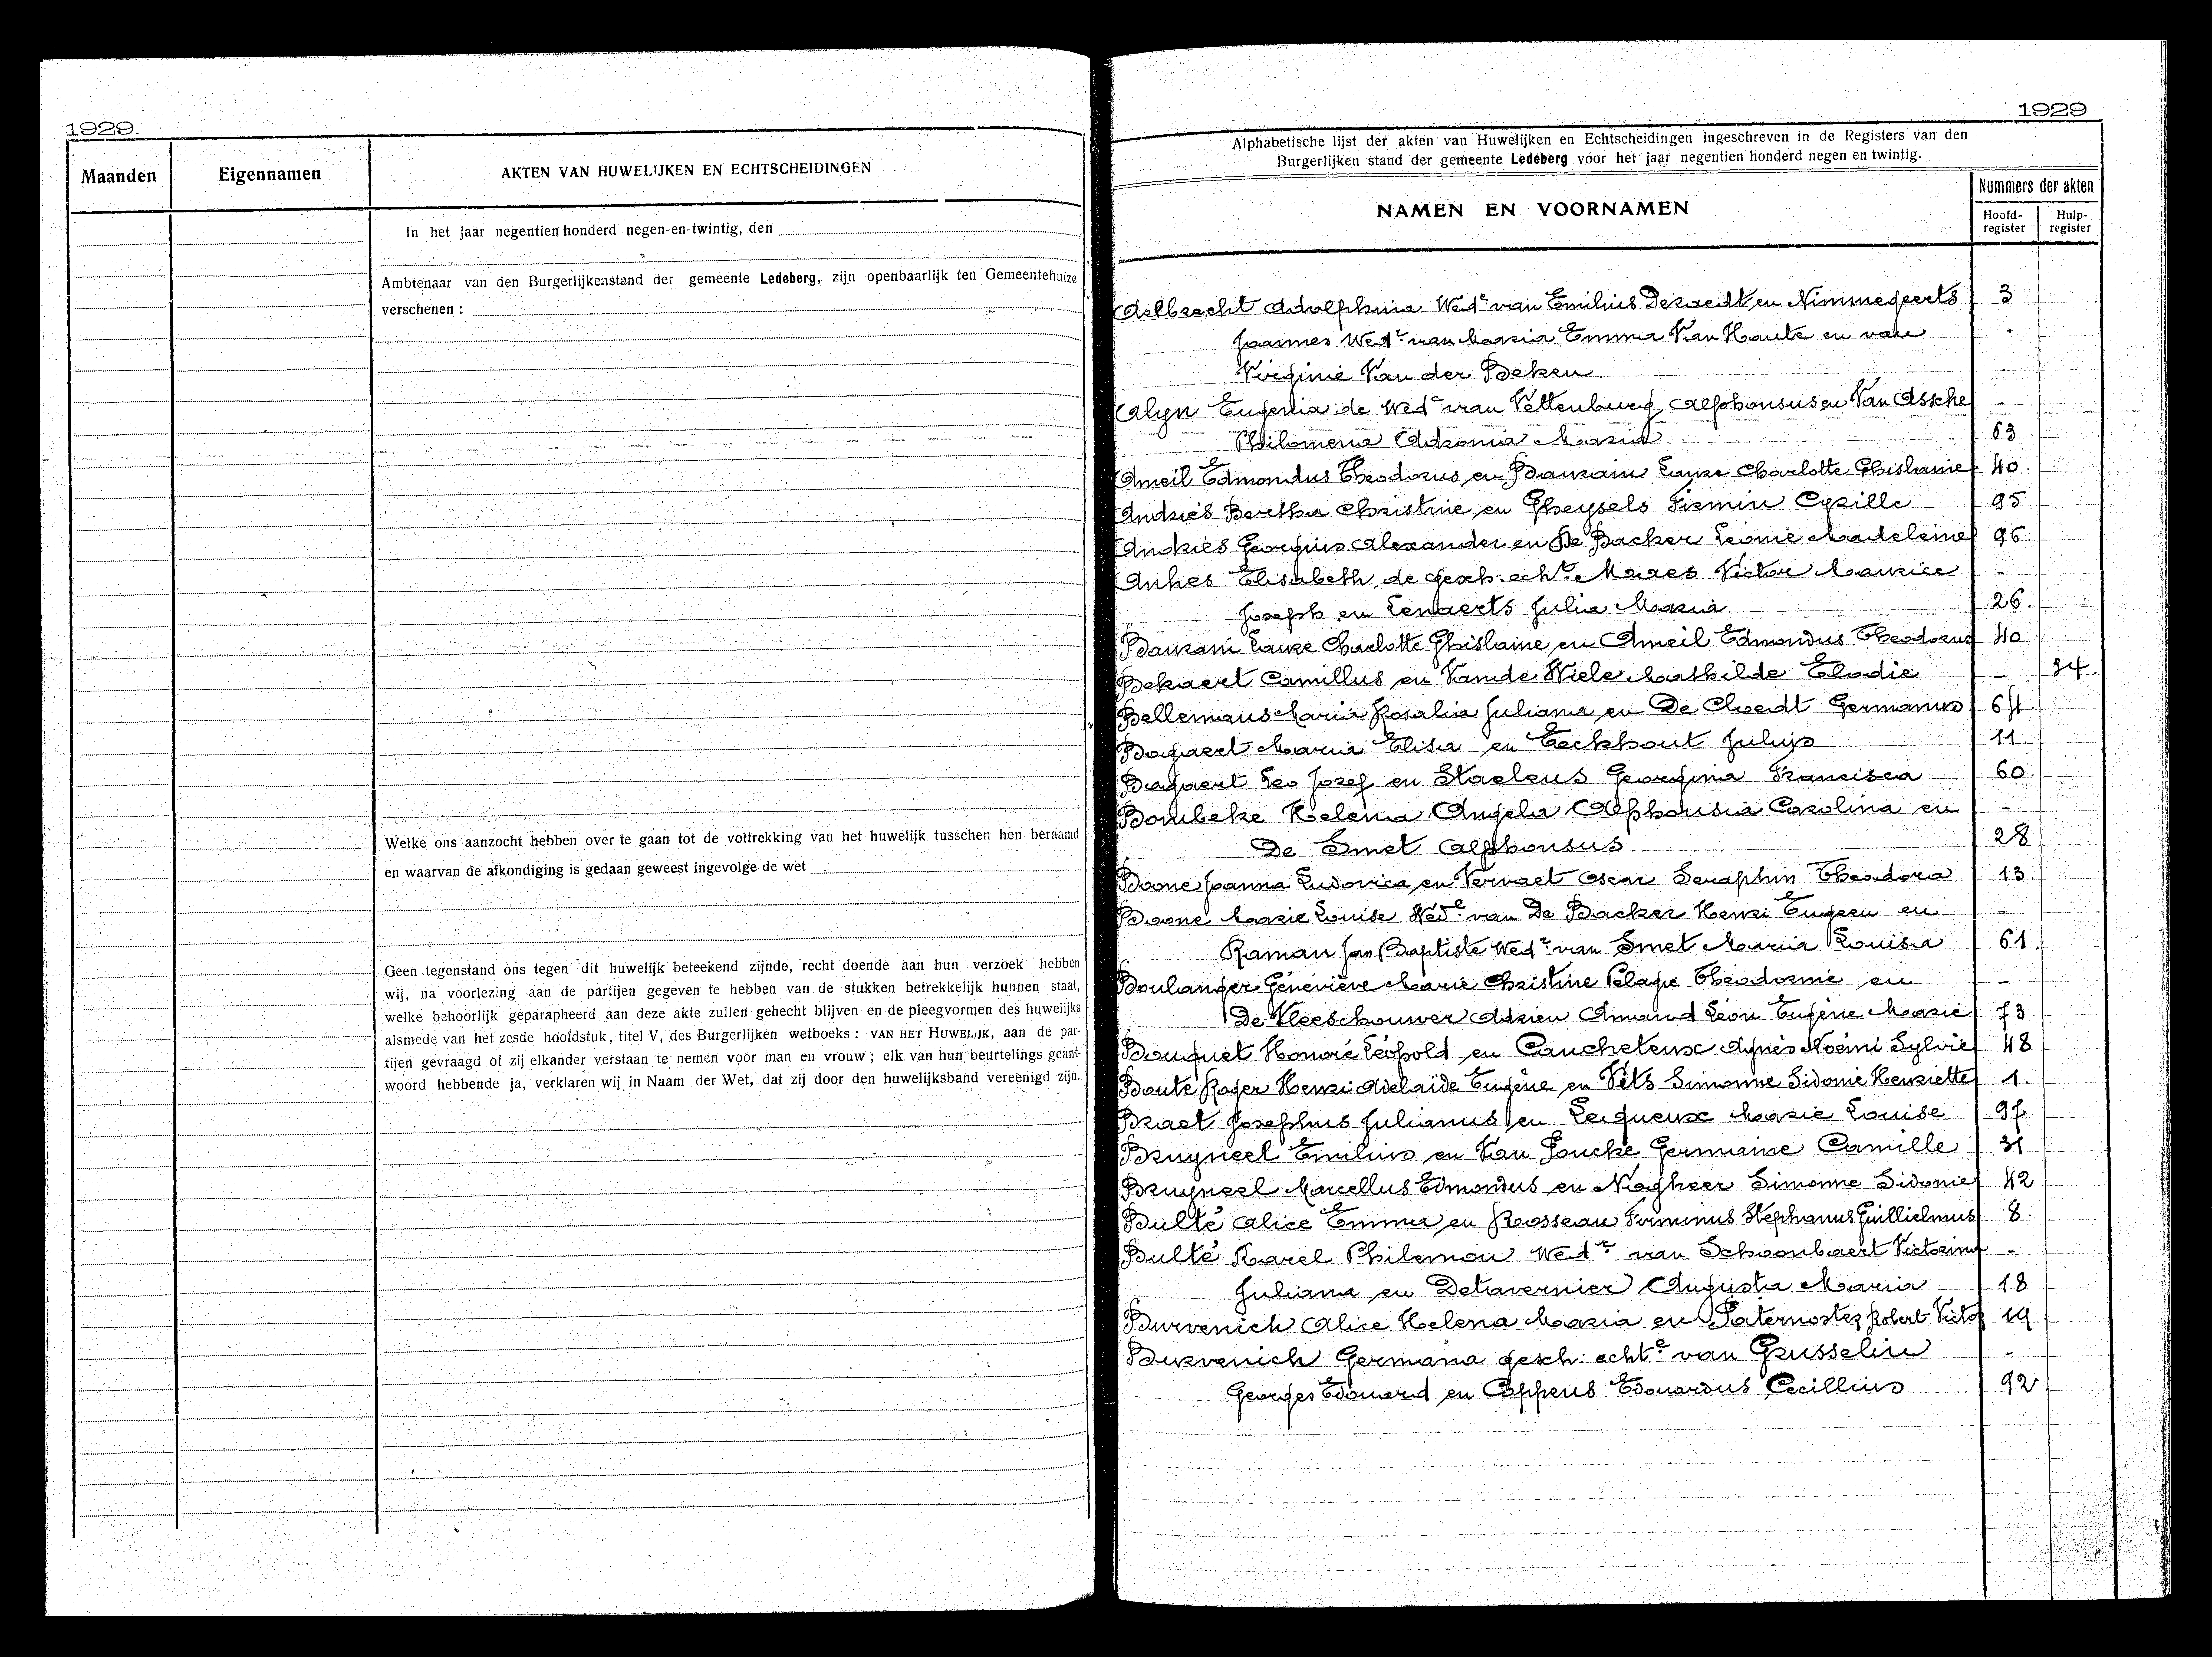 1929.
Maanden
Eigennamen
AKTEN VAN HUWELIJKEN EN ECHTSCHEIDINGEN
In het jaar negentien honderd negen-en-twintig, den
Ambtenaar van den Burgerlijkenstand der gemeente Ledeberg, zijn openbaarlijk ten Gemeentehuize
verschenen :
Welke ons aanzocht hebben over te gaan tot de voltrekking van het huwelijk tusschen hen beraamd
en waarvan de afkondiging is gedaan geweest ingevolge de wet
Geen tegenstand ons tegen dit huwelijk beteekend zijnde, recht doende aan hun verzoek hebben
wij, na voorlezing aan de partijen gegeven te hebben van de stukken betrekkelijk hunnen staat,
welke behoorlijk geparapheerd aan deze akte zullen gehecht blijven en de pleegvormen des huwelijks
alsmede van het zesde hoofdstuk, titel V, des Burgerlijken wetboeks : VAN HET HUWELIJK, aan de par-
tijen gevraagd of zij elkander verstaan te nemen voor man en vrouw ; elk van hun beurtelings geant-
woord hebbende ja, verklaren wij in Naam der Wet, dat zij door den huwelijksband vereenigd zijn.
1929
Alphabetische lijst der akten van Huwelijken en Echtscheidingen ingeschreven in de Registers van den
Burgerlijken stand der gemeente Ledeberg voor het jaar negentien honderd negen en twintig.
NAMEN EN VOORNAMEN
Nummers der akten
Hoofd-register
Hulp-register
Aelbrecht Adolphina Wede van Emilius Deraedt en Nimmegeerts 3
Joannes Wedr van Maria Emma Van Haute en van -
Virginie Van der Beken. -
Alyn Eugenia de Wede van Vettenburg Alphonsus en Van Assche -
Philomena Maria 63
Ameil Edmondus Theodorus en Bauzain Laure Charlotte Ghislaine 40.
Andries Bertha Christine en Gheysels Firmin Cyrille 95
Andries Georgius Alexander en De Backer Leonie Madeleine 96
Anhes Elisabeth, de gesch: echte Maes Victor Maurice -
Joseph en Lenaerts Julia Maria 26.
Bauzain Laure Charlotte Ghislaine en Ameil Edmondus Theodorus 40
Bekaert Camillus en Vande Wiele Mathilde Elodie - 34.
Bellemans Maria Rosalia Juliana en De Cloedt Germanus 64
Bogaert Maria Elisa en Eeckhout Julius 11.
Bogaert Leo Jozef en Staelens Georgina Francisca 60.
Bombeke Helena Angela Alphonsia Carolina en -
De Smet Alphonsus 28
Boone Joanna Ludovica en Vervaet Oscar Seraphin Theodora 13.
Boone Marie Louise Wede van De Backer Henri Eugeen en -
Raman Jan Baptiste Wedr van Smet Maria Louisa 61.
Boulanger Géneviève Marie Christine Pelagie Théodorine en -
De Vleeschouwer Adrien Armand Léon Eugène Marie 73
Bouquet Honoré Léopold en Caucheteux Agnès Noémi Sylvie 48
Boute Roger Henri Adelaïde Eugène en Vets Simonne Sidonie Henriette 1.
Braet Josephus Julianus en Lequeux Marie Louise 97
Bruyneel Emilius en Van Loucke Germaine Camille 31
Bruyneel Marcellus Edmondus en Nagheer Simonne Sidonie 42
Bulté Alice Emma en Rosseau Firminus Stephanus Guillielmus 8.
Bulté Karel Philemon Wedr van Schoonbaert Victorina -
Juliana en Detavernier Augusta Maria 18
Burvenich Alice Helena Maria en Paternoster Robert Victor 19
Burvenich Germana gesch: echte van Grusselin -
Georges Edouard en Coppens Edouardus Cecillius 92